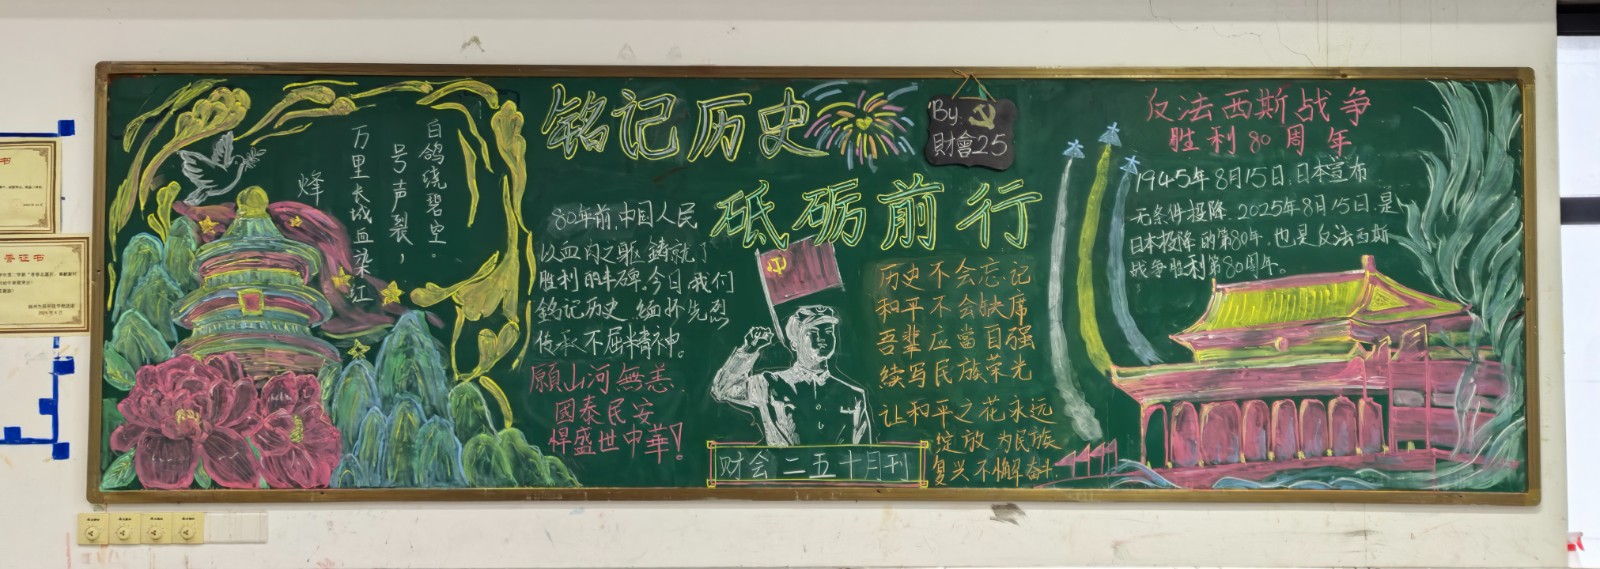 铭记历史
砥砺前行
By:
財會25
白鸽绕碧空。
号声裂，
万里长城血染红
烽
80年前,中国人民
以血肉之躯鑄就了
胜利的丰碑,今日,我们
铭记历史,缅怀先烈
传承不屈精神。
願山河無恙
國泰民安
悍盛世中華!
财会二五十月刊
历史不会忘记
和平不会缺席
吾辈应當自强
续写民族荣光
让和平之花永远
绽放 为民族
复兴不懈奋斗.
反法西斯战争
胜利80周年
1945年8月15日,日本宣布
无条件投降.2025年8月15日,是
日本投降的第80年,也是反法西斯
战争胜利第80周年。
证书